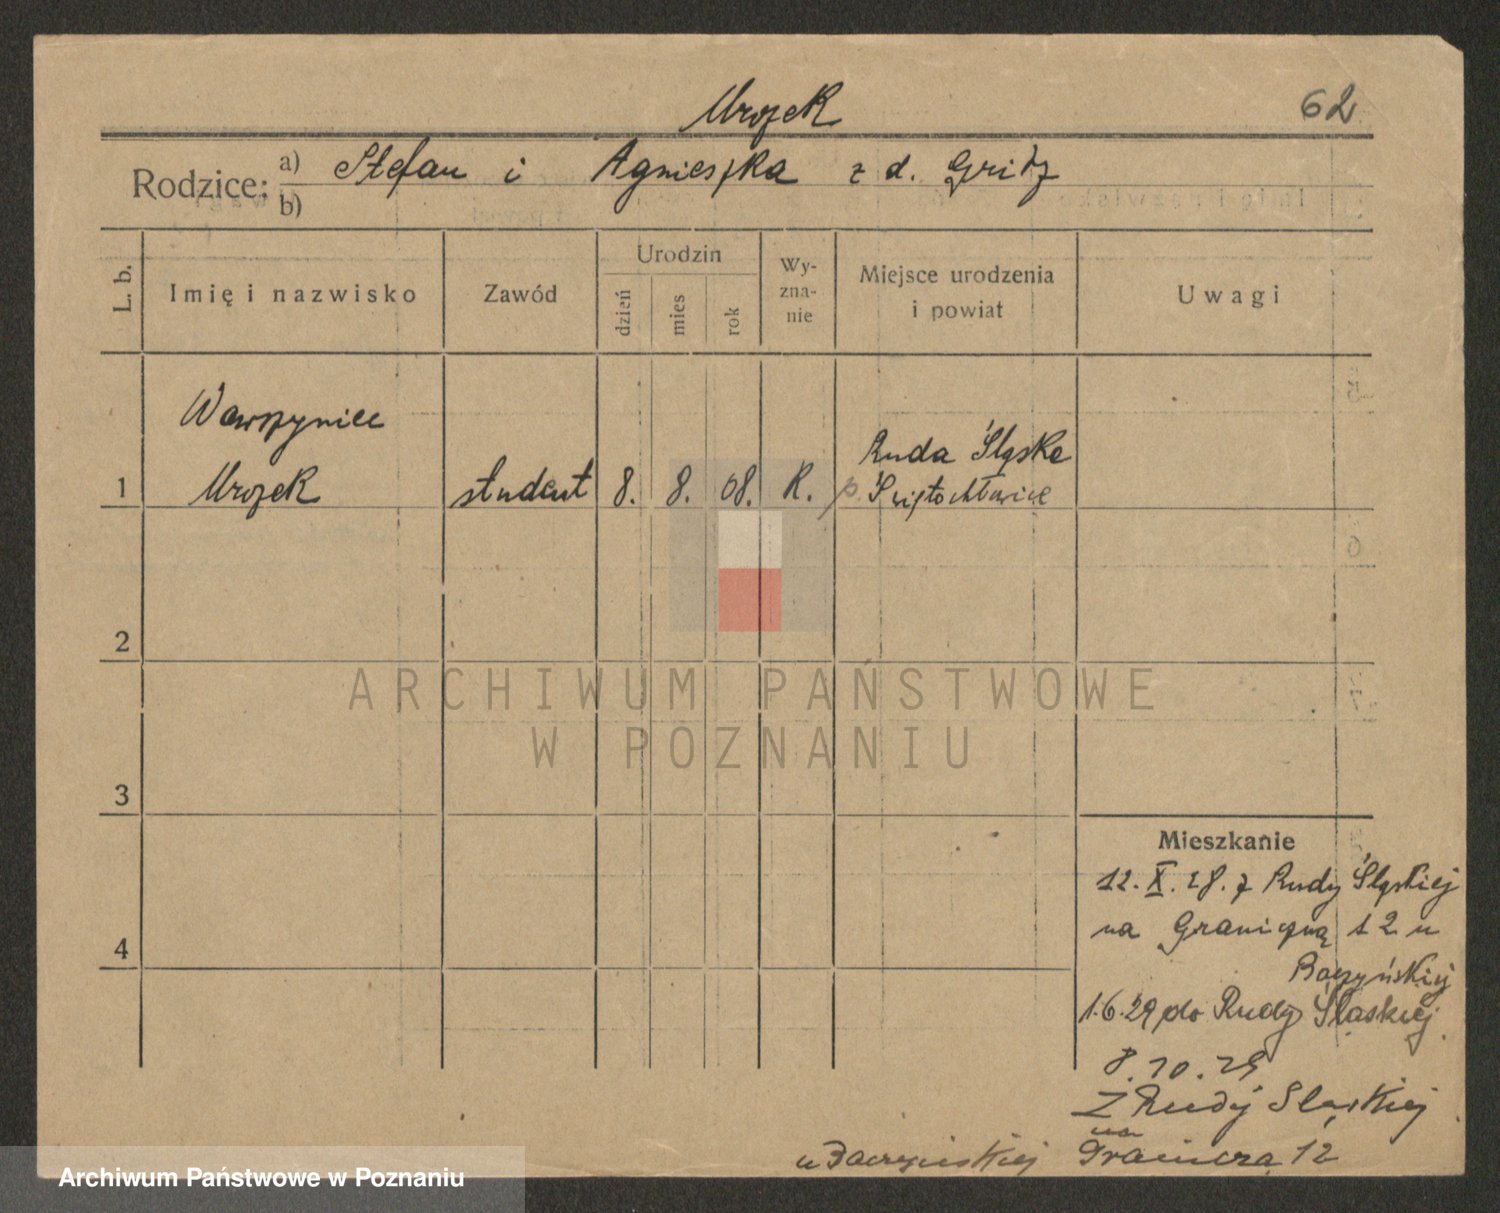 Mrozek
62
Rodzice: a) Stefan i Agnieszka z d. Gritz
b)
L. b.
Imię i nazwisko
Zawód
Urodzin
dzień
mies
rok
Wy-
zna-
nie
Miejsce urodzenia
i powiat
Uwagi
Wawrzyniec
1 Mrozek student 8. 8. 08. R. Ruda Śląska
p. Świętochłowice
2
3
4
Mieszkanie
12. X. 28. z Rudy Śląskiej
na Graniczną 12 u
Baczyńskiej
1.6.29 do Rudy Śląskiej
8.10.29
Z Rudy Slaskiej
na
u Baczynskiej Graniczna 12
ARCHIWUM PAŃSTWOWE
W POZNANIU
Archiwum Państwowe w Poznaniu